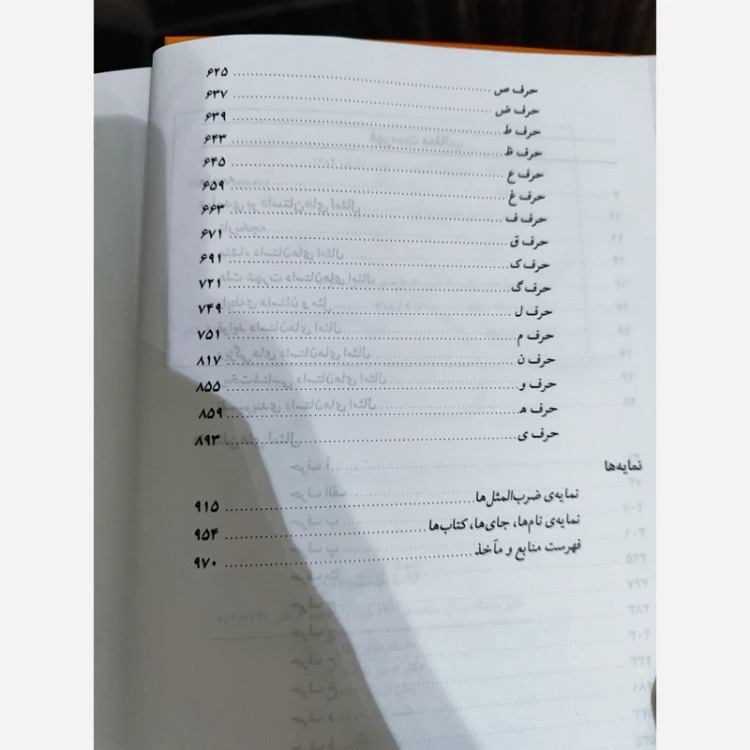 حرف ص ........ ۶۲۵
حرف ض ........ ۶۳۷
حرف ط ........ ۶۳۹
حرف ظ ........ ۶۴۳
حرف ع ........ ۶۴۵
حرف غ ........ ۶۵۹
حرف ف ........ ۶۶۳
حرف ق ........ ۶۷۱
حرف ک ........ ۶۹۱
حرف گ ........ ۷۲۱
حرف ل ........ ۷۴۹
حرف م ........ ۷۵۱
حرف ن ........ ۸۱۷
حرف و ........ ۸۵۵
حرف ه ........ ۸۵۹
حرف ی ........ ۸۹۳
نمایه‌ها
نمایه‌ی ضرب‌المثل‌ها ........ ۹۱۵
نمایه‌ی نام‌ها، جای‌ها، کتاب‌ها ........ ۹۵۴
فهرست منابع و مآخذ ........ ۹۷۰